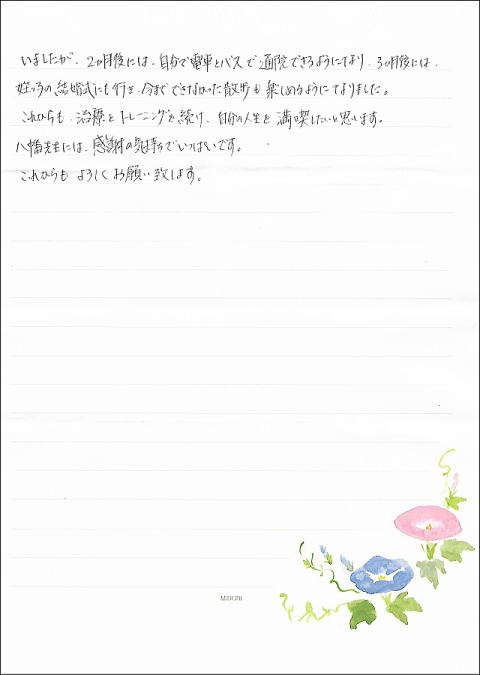 いましたが、2ヵ月後には、自分で電車とバスで通院できるようになり、3ヵ月後には、
姪っ子の結婚式にも行き、今までできなかった散歩も楽しめるようになりました。
これからも、治療とトレーニングを続け、自分の人生を満喫したいと思います。
八幡先生には、感謝の気持ちでいっぱいです。
これからもよろしくお願い致します。
MIDORI